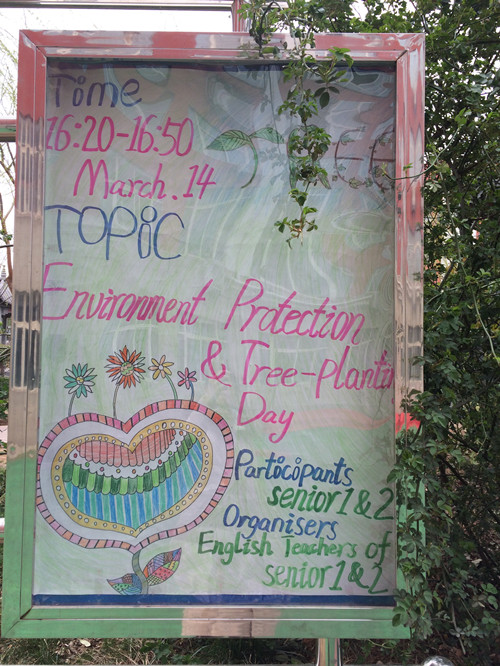 Time
16:20-16:50
March.14
TOPiC
Environment Protection
& Tree-plantin
Day
Participants
senior 1 & 2
Organisers
English Teachers of
senior 1 & 2